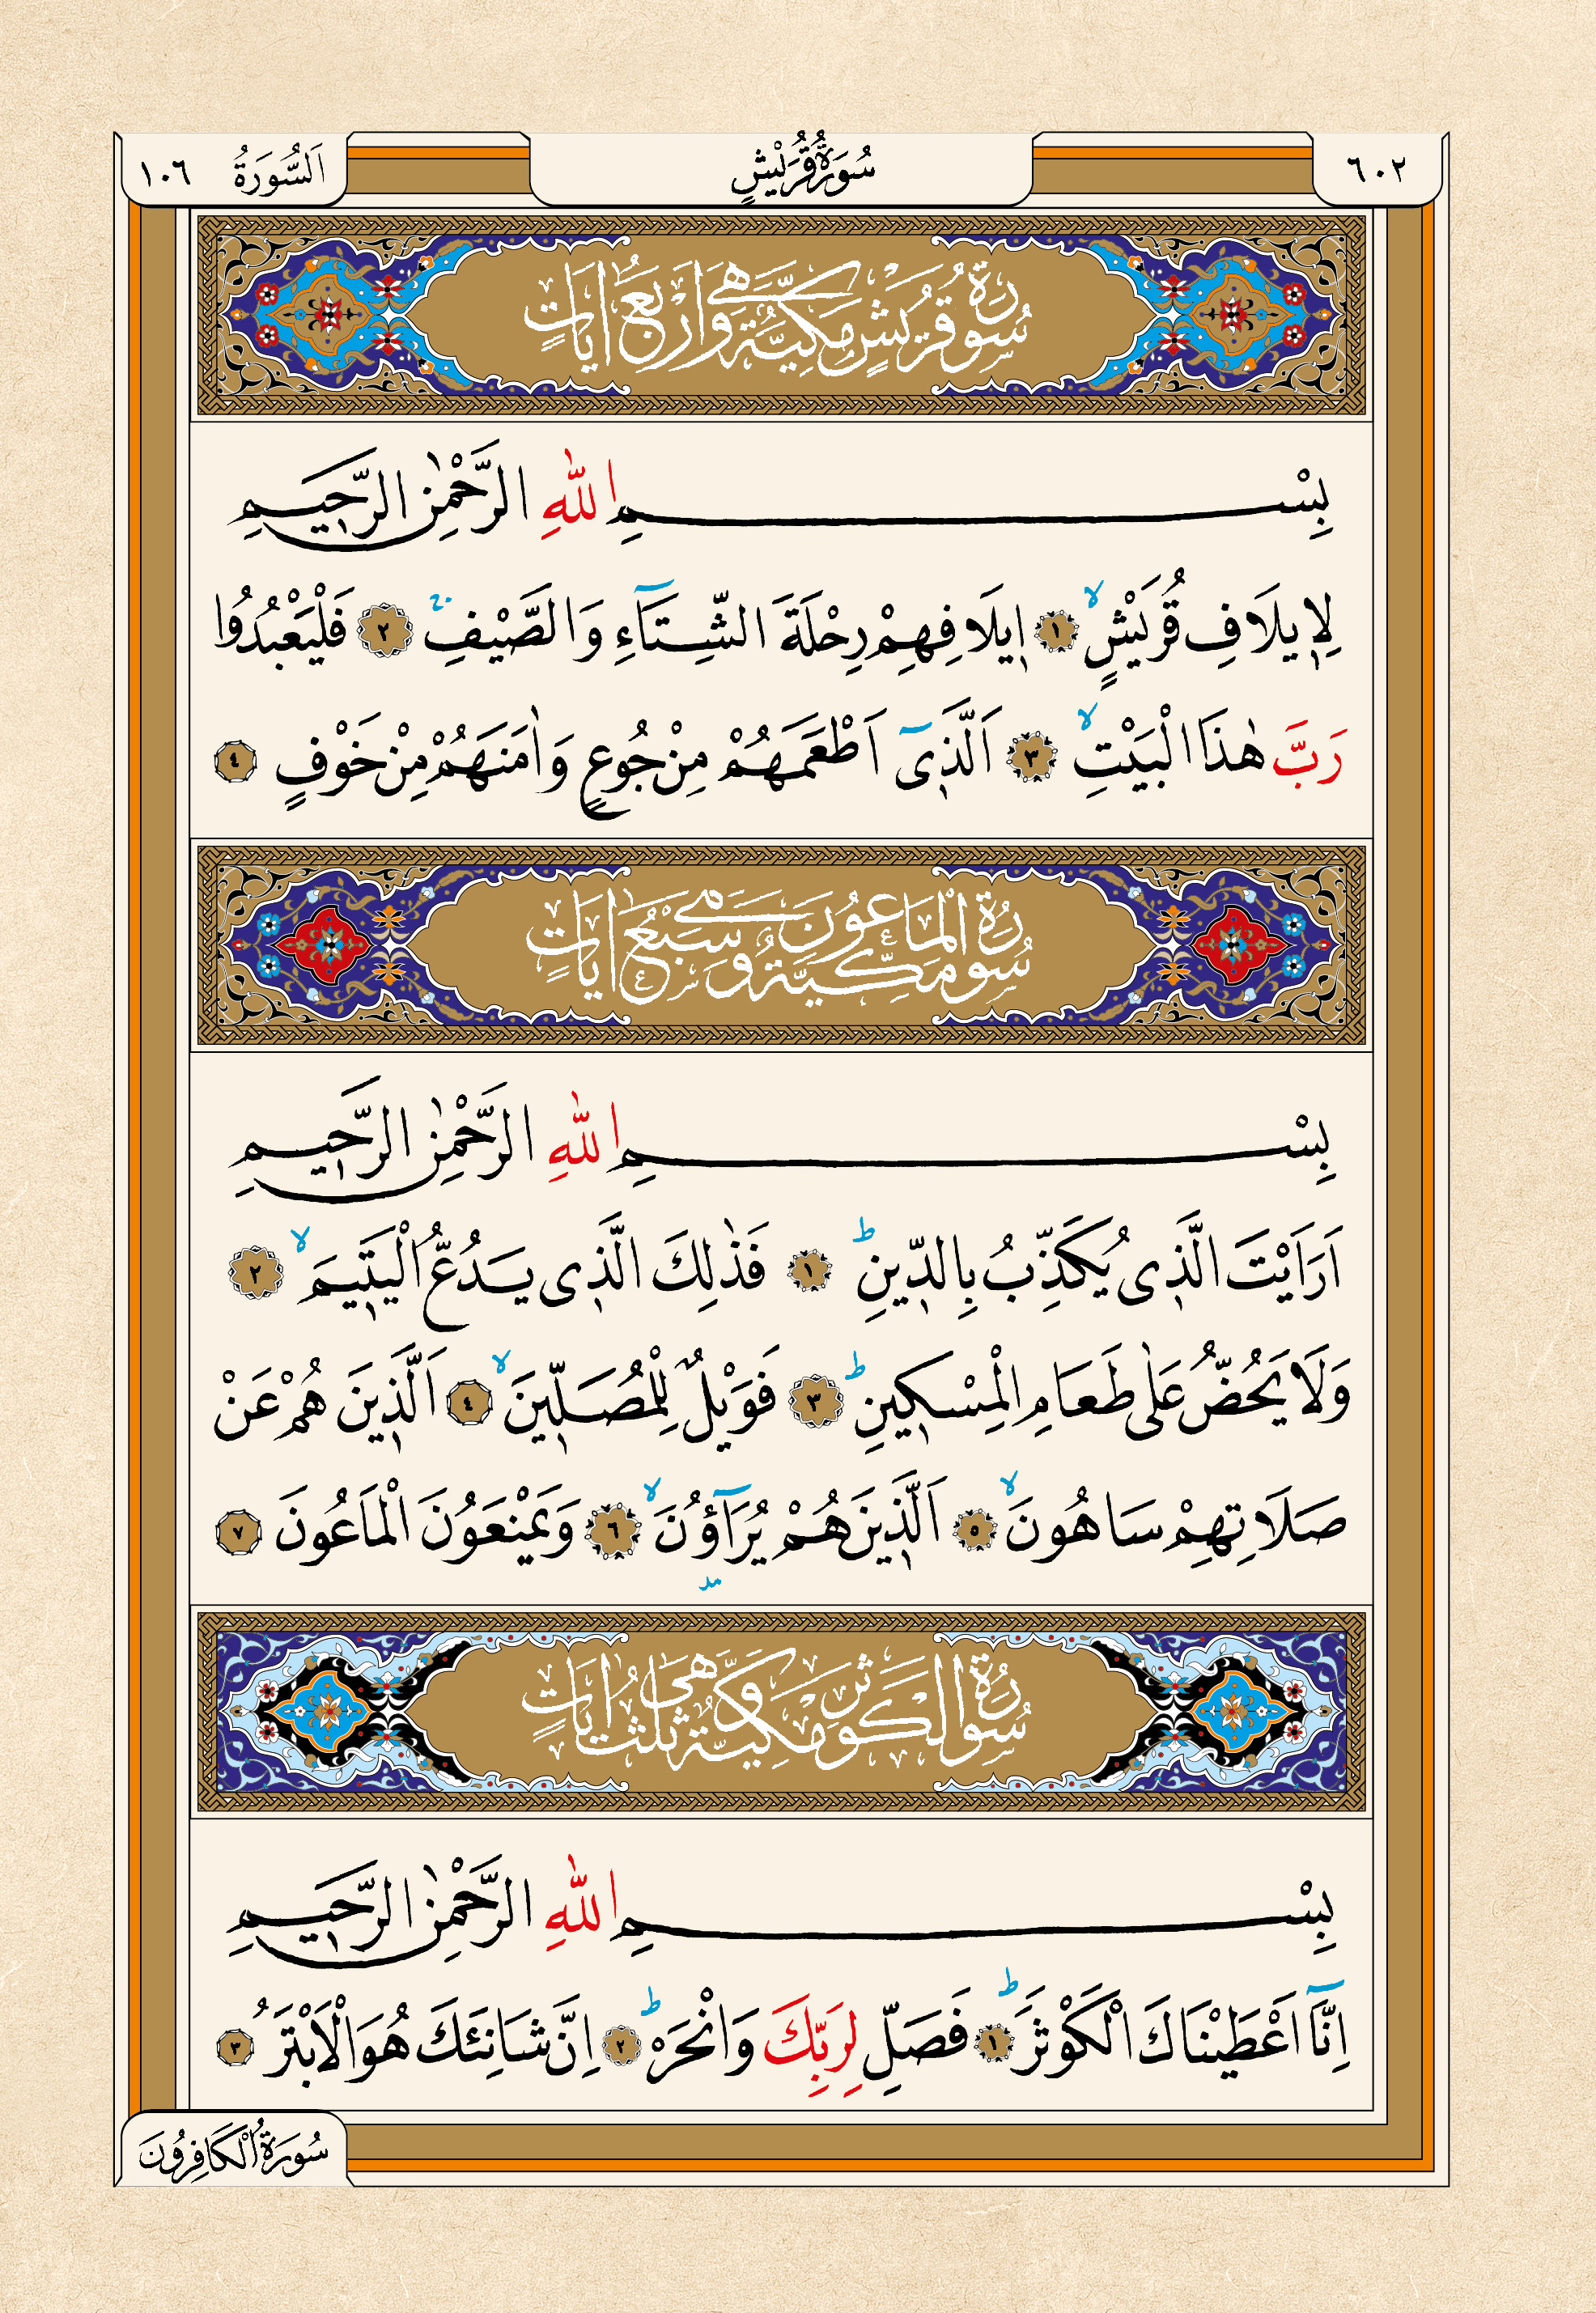 ٦٠٢
سُورَةُ قُرَيْشٍ
اَلسُّورَةُ ١٠٦
سُورَةُ قُرَيْشٍ مَكِّيَّةٌ وَهِيَ اَرْبَعُ اٰيَاتٍ
بِسْمِ اللّٰهِ الرَّحْمٰنِ الرَّحٖيمِ
لِاٖيلَافِ قُرَيْشٍ ۙ ١ اٖيلَافِهِمْ رِحْلَةَ الشِّتَٓاءِ وَالصَّيْفِ ۚ ٢ فَلْيَعْبُدُوا
رَبَّ هٰذَا الْبَيْتِ ۙ ٣ اَلَّذٖٓي اَطْعَمَهُمْ مِنْ جُوعٍ وَاٰمَنَهُمْ مِنْ خَوْفٍ ٤
سُورَةُ الْمَاعُونَ مَكِّيَّةٌ وَهِيَ سَبْعُ اٰيَاتٍ
بِسْمِ اللّٰهِ الرَّحْمٰنِ الرَّحٖيمِ
اَرَاَيْتَ الَّذٖي يُكَذِّبُ بِالدّٖينِ ؕ ١ فَذٰلِكَ الَّذٖي يَدُعُّ الْيَتٖيمَ ۙ ٢
وَلَا يَحُضُّ عَلٰى طَعَامِ الْمِسْكٖينِ ؕ ٣ فَوَيْلٌ لِلْمُصَلّٖينَ ۙ ٤ اَلَّذٖينَ هُمْ عَنْ
صَلَاتِهِمْ سَاهُونَ ۙ ٥ اَلَّذٖينَ هُمْ يُرَٓاؤُ۫نَ ۙ ٦ وَيَمْنَعُونَ الْمَاعُونَ ٧
مد
سُورَةُ الْكَوْثَرِ مَكِّيَّةٌ وَهِيَ ثَلٰثُ اٰيَاتٍ
بِسْمِ اللّٰهِ الرَّحْمٰنِ الرَّحٖيمِ
اِنَّٓا اَعْطَيْنَاكَ الْكَوْثَرَ ؕ ١ فَصَلِّ لِرَبِّكَ وَانْحَرْ ؕ ٢ اِنَّ شَانِئَكَ هُوَ الْاَبْتَرُ ٣
سُورَةُ الْكَافِرُونَ